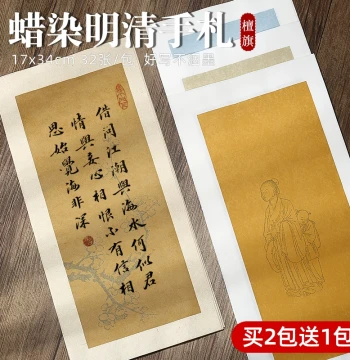 蜡染明清手札
檀旗
17x34cm 32张/包 好写不洇墨
借問江潮與海水何似君
情與妾心相恨不有信相
思始覺海非深
买2包送1包